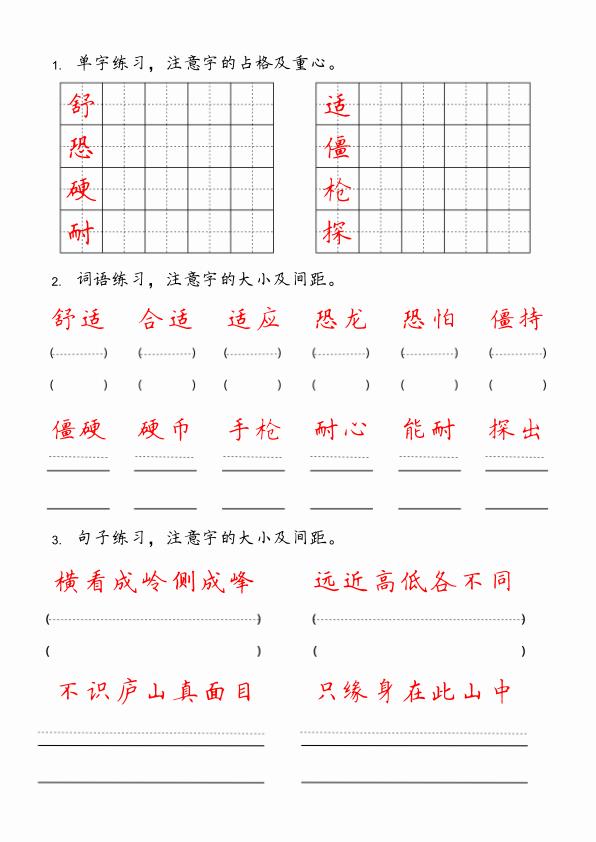 1. 单字练习，注意字的占格及重心。
舒 适
恐 僵
硬 枪
耐 探
2. 词语练习，注意字的大小及间距。
舒适 合适 适应 恐龙 恐怕 僵持
( ) ( ) ( ) ( ) ( ) ( )
( ) ( ) ( ) ( ) ( ) ( )
僵硬 硬币 手枪 耐心 能耐 探出
3. 句子练习，注意字的大小及间距。
横看成岭侧成峰 远近高低各不同
( ) ( )
( ) ( )
不识庐山真面目 只缘身在此山中